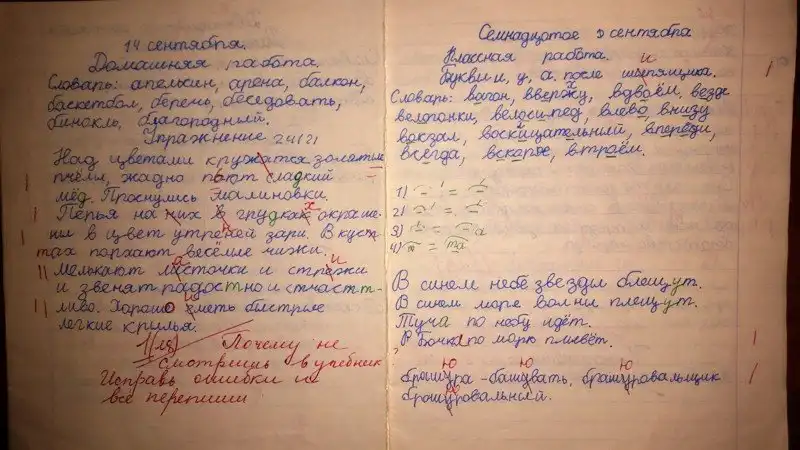 14 сентября.
Домашняя работа.
Словарь: апельсин, арена, балкон,
баскетбол, беречь, беседовать,
бинокль, благородный.
Упражнение 24(2)
Над цветами кружатся золотые
пчёлы, жадно пьют сладкий
мёд. Проснулись малиновки.
Перья на них в грудках окраше-
ны в цвет утреней зари. В куст-
тах порхают весёлые чижи.
Мелькают ласточки и стрижи
и звенят радостно и счастт-
ливо. Хорошо иметь быстрые
легкие крылья.
Почему не
смотришь в учебник
Исправь ошибки и
все перепиши
Семнадцотое сентября
Классная работа.
Буквы и, у, а после шипящих.
Словарь: вагон, ввержу, вдвоём, везде
велогонки, велосипед, влево, внизу
вокзал, восклицательный, впереди,
всегда, вскоре, втроём.
1)
2)
3)
4)
В синем небе звезды блещут.
В синем море волны плещут.
Туча по небу идёт.
Бочка по морю плывёт.
ю ю ю
брошура - башувать, брашуровальщик
брошуровальный.